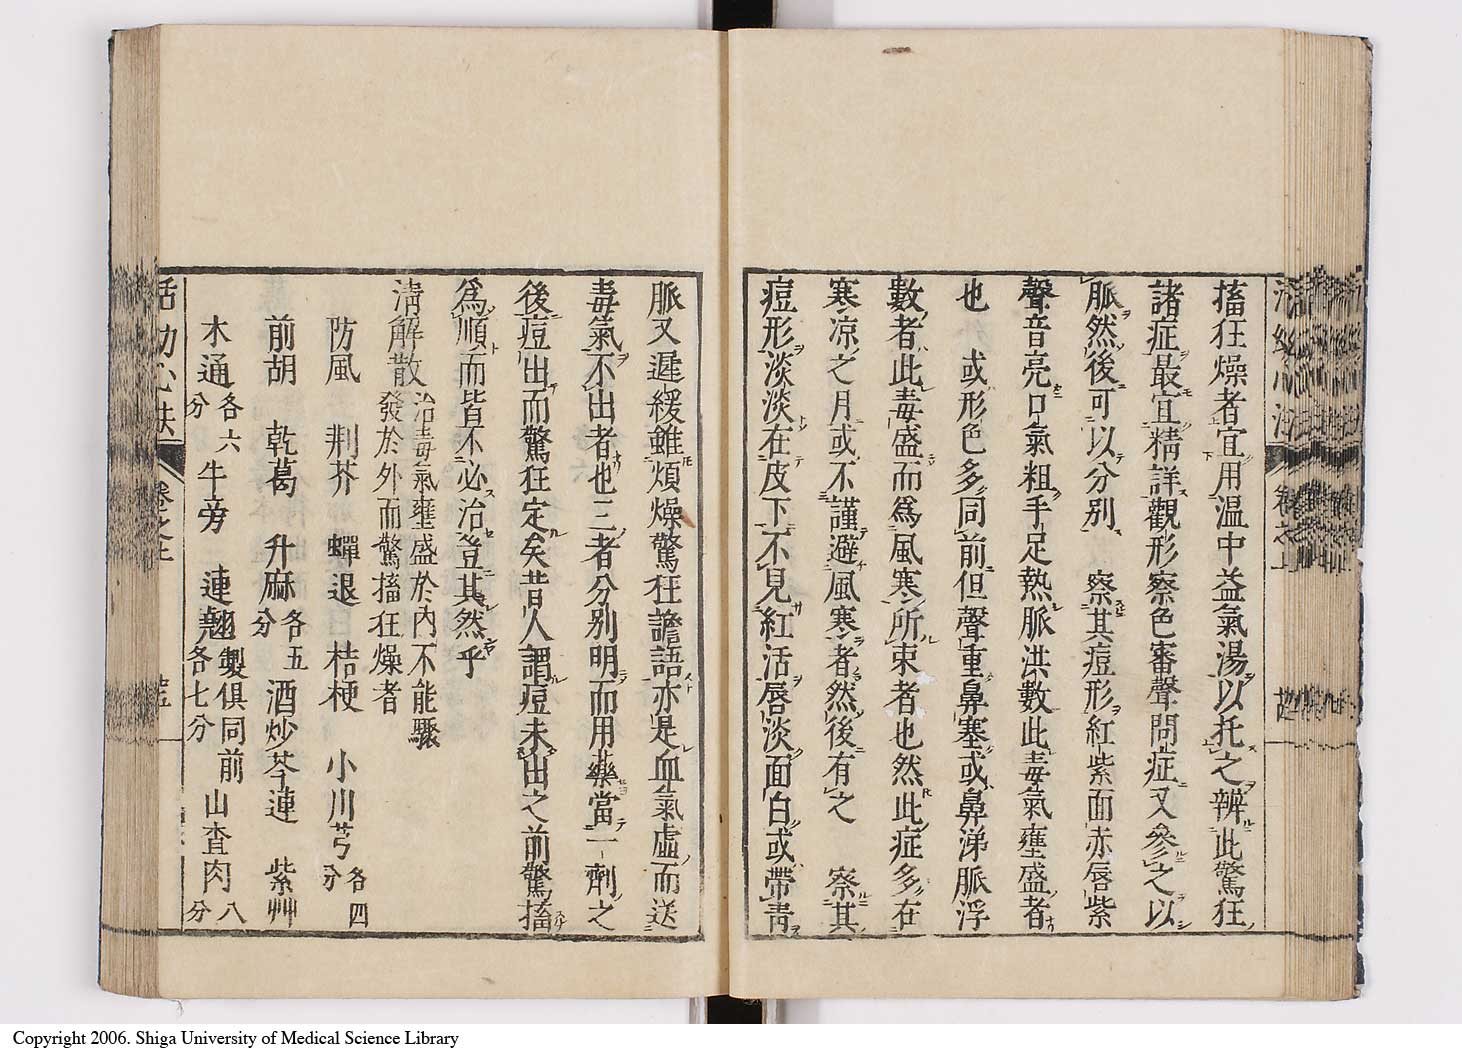 搐狂燥者宜用温中益氣湯以托之辨此驚狂
諸症最宜精詳觀形察色審聲問症又參之以
脈然後可以分別　察其痘形紅紫面赤唇紫
聲音亮口氣粗手足熱脈洪數此毒氣壅盛者
也　或形色多同前但聲重鼻塞或鼻涕脈浮
數者此毒盛而爲風寒所束者也然此症多在
寒凉之月或不謹避風寒者然後有之　察其
痘形淡淡在皮下不見紅活唇淡面白或帶青
脈又遲緩雖煩燥驚狂譫語亦是血氣虛而送
毒氣不出者也三者分別明而用藥當一劑之
後痘出而驚狂定矣昔人謂痘未出之前驚搐
爲順而皆不必治豈其然乎
清解散 治毒氣壅盛於内不能驟
發於外而驚搐狂燥者
防風　荆芥　蟬退　桔梗　小川芎各四分
前胡　乾葛　升麻各五分　酒炒芩連　紫艸
木通各六分　牛旁　連翹製俱同前各七分　山查肉八分
活幼心法　卷之上
Copyright 2006. Shiga University of Medical Science Library